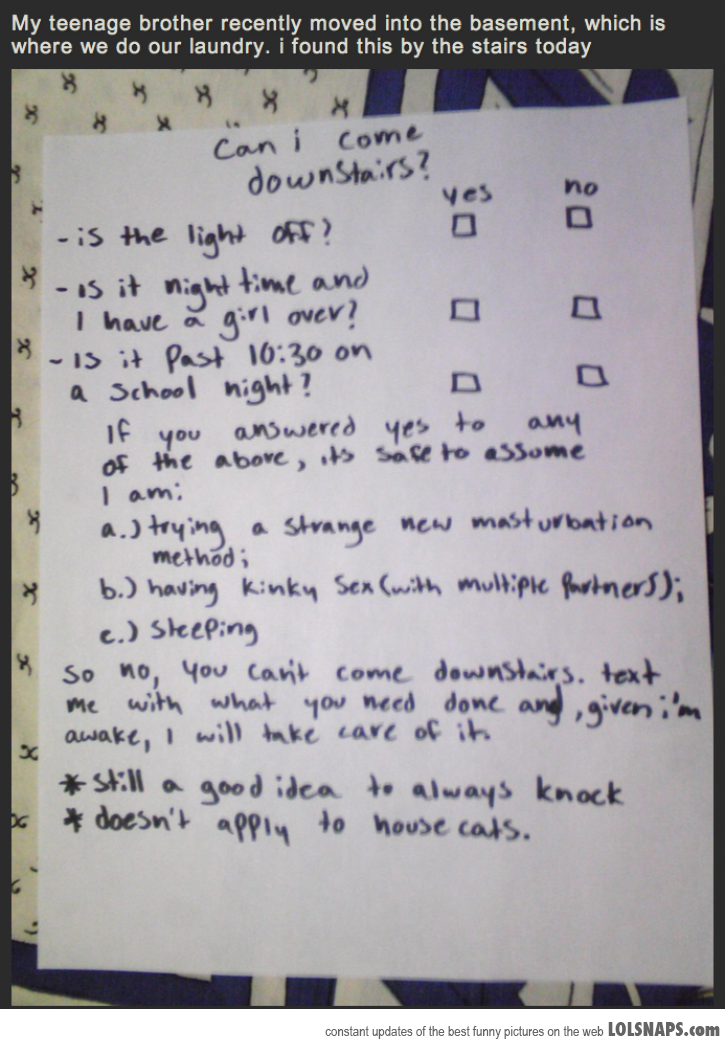 My teenage brother recently moved into the basement, which is
where we do our laundry. i found this by the stairs today
Can i come
downstairs?
yes no
- is the light off?
- is it night time and
I have a girl over?
- Is it past 10:30 on
a school night?
If you answered yes to any
of the above, its safe to assume
I am:
a.) trying a strange new masturbation
method;
b.) having kinky sex (with multiple partners);
c.) sleeping
So no, you can't come downstairs. text
me with what you need done and, given i'm
awake, I will take care of it.
* still a good idea to always knock
* doesn't apply to house cats.
constant updates of the best funny pictures on the web LOLSNAPS.com